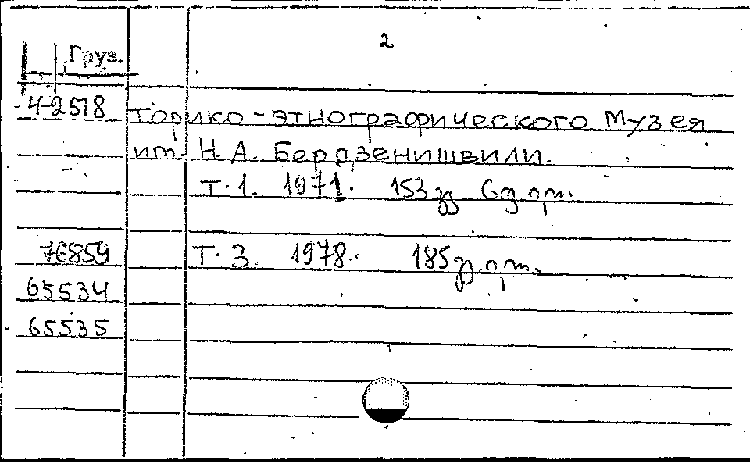 2
Груз.
4-2518 торико-этнографического музея
им. Н А. Бердзенишвили.
Т. 1. 1971. 153
76859 Т. 3. 1978. 185
65534
65535